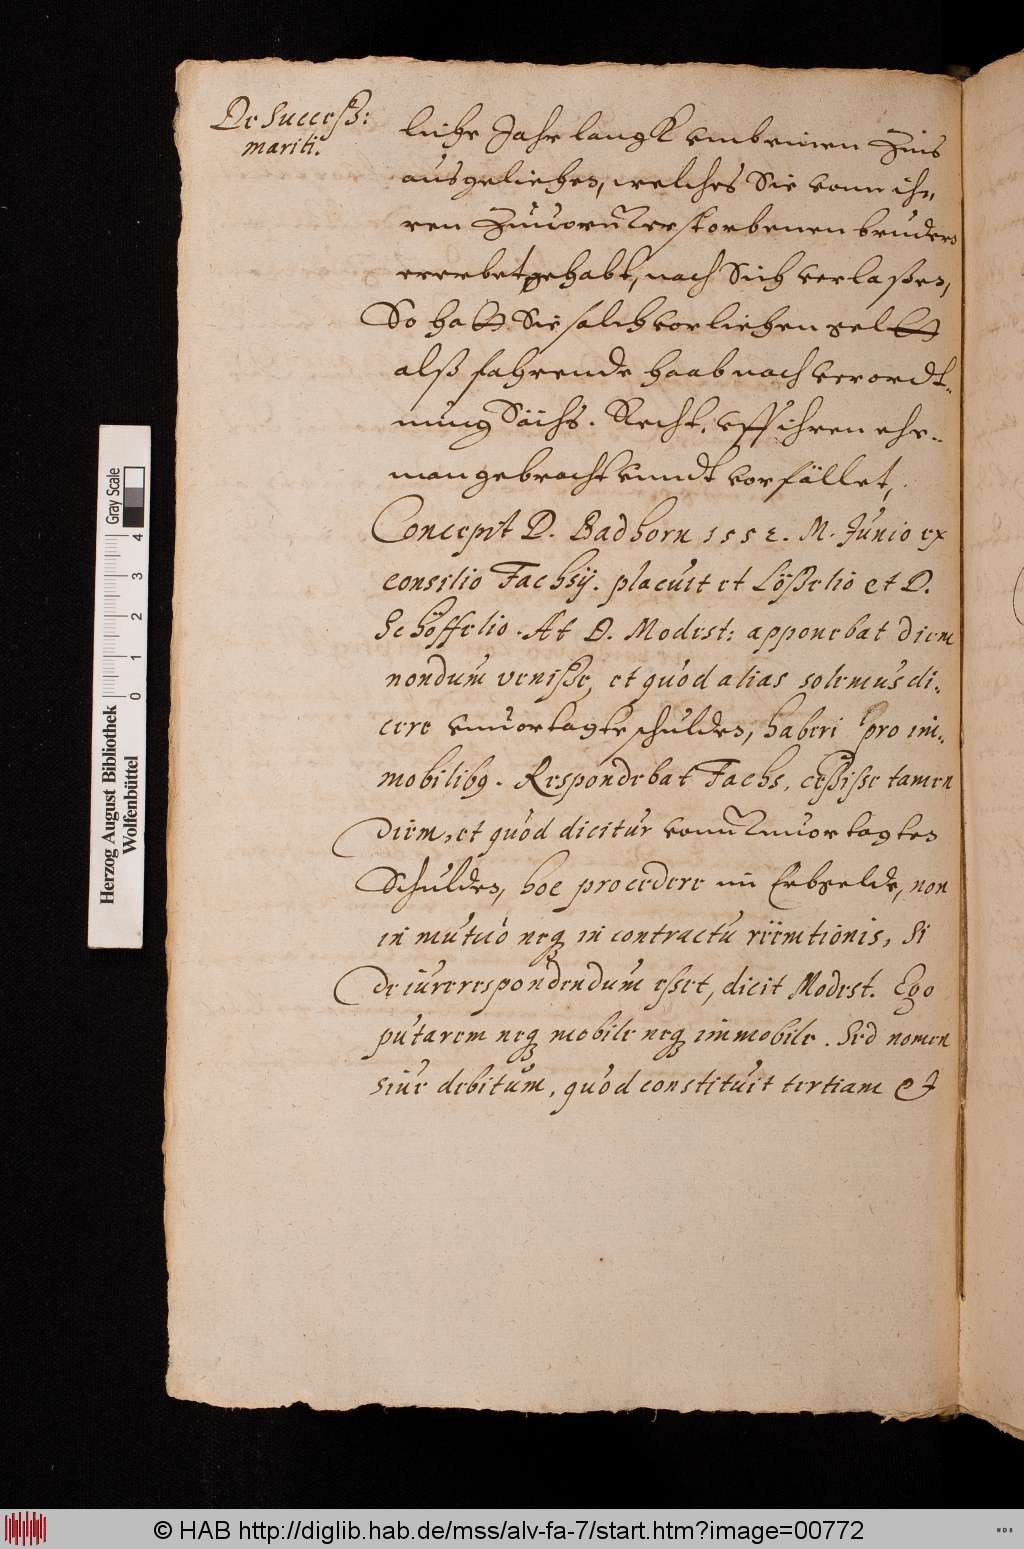 De Success:
mariti.
liche Jahr langk umb einen Zins
ausgeliehen, welches Sie vonn ih-
ren Zuuorn verstorbenen bruders
ererbet gehabt, nach Sich verlaßen,
So hatt Sie solch vorliehen geltt
alß fahrende haab nach verordt-
nung Sächs. Recht. uff ihren ehe-
man gebracht unndt vorfället,
Concepit D. Badhorn 1552. M. Junio ex
consilio Fachsij. placuit et Lößelio et D.
Schöffelio. At D. Modest: apponebat diem
nondum venisse, et quod alias solemus di-
cere unuortagte schulden, haberi pro im-
mobilibq. Respondebat Fachs, cessisse tamen
diem, et quod dicitur vonn unuortagten
Schulden, hoc procedere im Erbgelde, non
in mutuo neq in contractu emtionis, Si
de iure respondendum esset, dicit Modest. Ego
putarem neq mobile neq immobile. Sed nomen
siue debitum, quod constituit tertiam et
Gray Scale
0 1 2 3 4
Herzog August Bibliothek
Wolfenbüttel
© HAB http://diglib.hab.de/mss/alv-fa-7/start.htm?image=00772